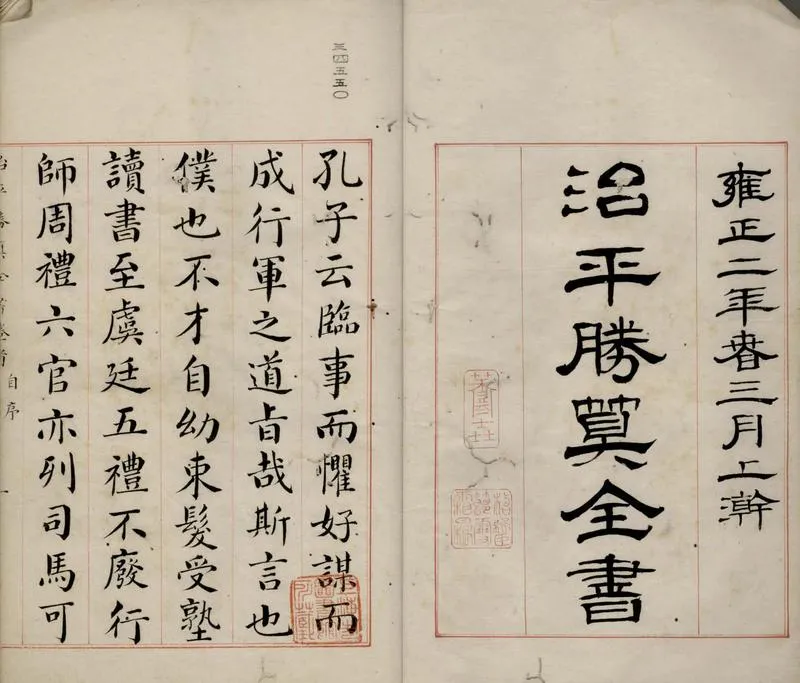 雍正二年春三月上澣
治平勝算全書
三四五五〇
孔子云臨事而懼好謀而
成行軍之道旨哉斯言也
僕也不才自幼束髮受塾
讀書至虞廷五禮不廢行
師周禮六官亦列司馬可
治平勝算全書卷首 自序 一